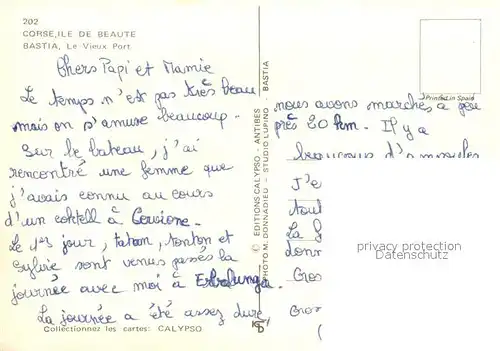 202
CORSE, ILE DE BEAUTE
BASTIA, Le Vieux Port
Chers Papi et Mamie
Le temps n'est pas très beau
mais on s'amuse beaucoup.
Sur le bateau, j'ai
rencontré une femme que
j'avais connu au cours
d'un à Cervione.
Le 1er jour, tatan, tonton et
Sylvie sont venus passés la
journée avec moi à Erbalunga.
La journée a été assez dure,
Collectionnez les cartes: CALYPSO
© EDITIONS CALYPSO - ANTIBES
PHOTO M. DONNADIEU - STUDIO LUPINO - BASTIA
Printed in Spain
nous avons marchés à peu
près 20 km. Il y a
beaucoup d'
J'e
tout
La
donn
Gros
Gros
privacy protection
Datenschutz